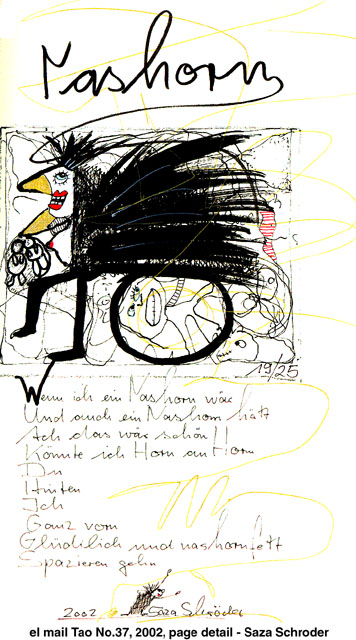 Nashorn
19/25
Wenn ich ein Nashorn wär
Und auch ein Nashorn hätt
Ach das wär schön!!
Könnte ich Horn an Horn
Du
Hinten
Ich
Ganz vorn
Glücklich und nashornfett
Spazieren gehn
2002 Saza Schröder
el mail Tao No.37, 2002, page detail - Saza Schroder